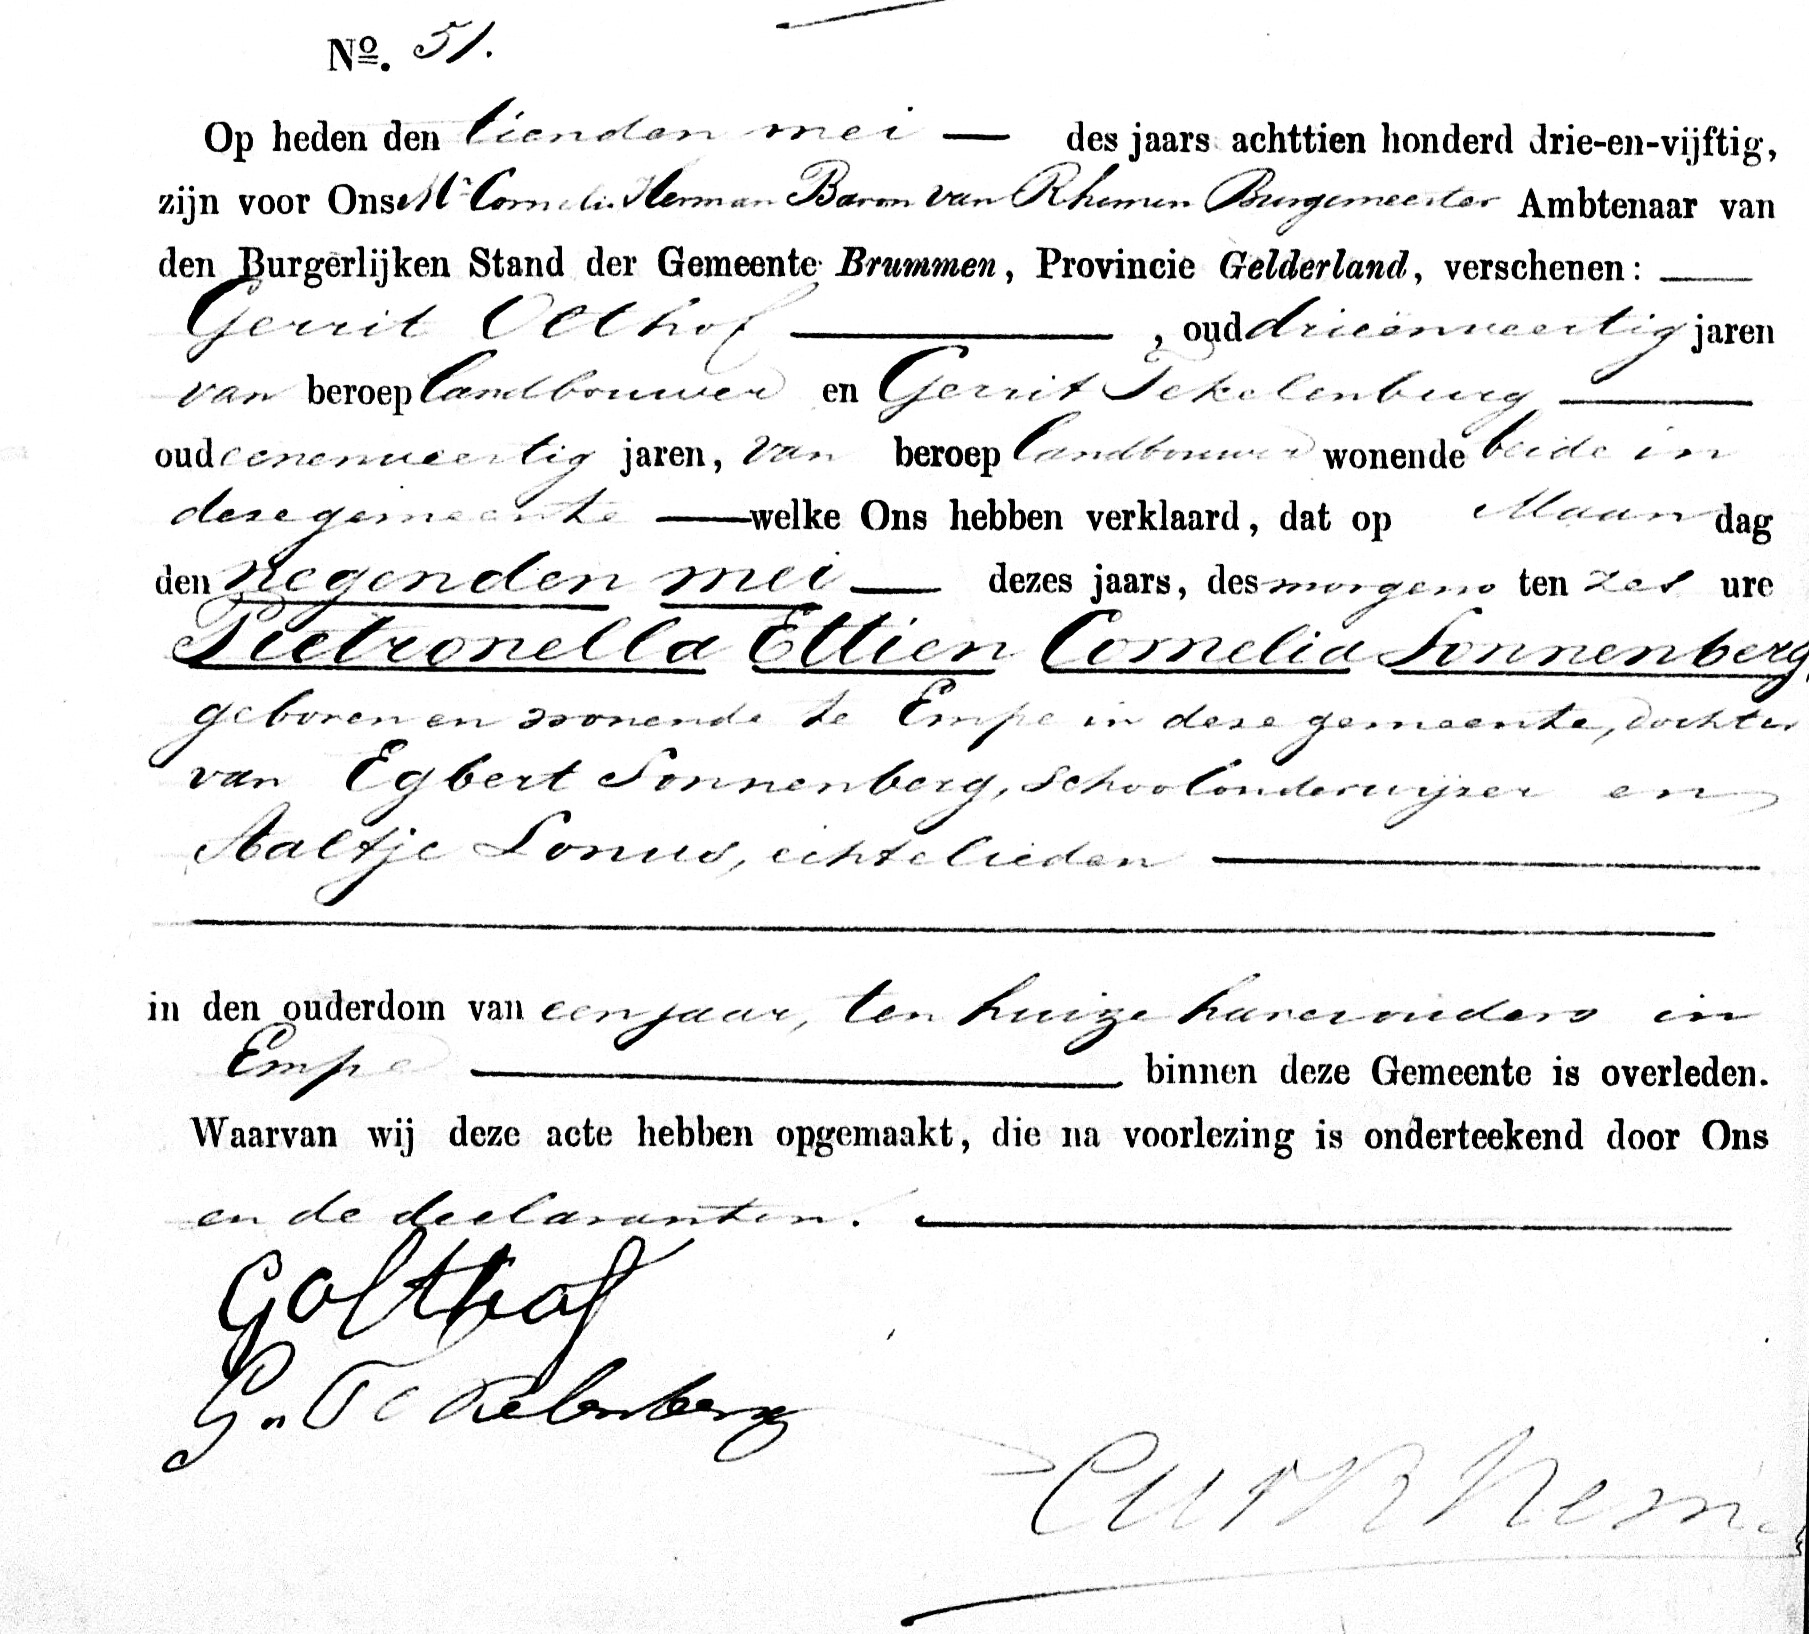 Nº. 51.
Op heden den tienden mei — des jaars achttien honderd drie-en-vijftig,
zijn voor Ons Mr Cornelis Herman Baron van Rhemen Burgemeester Ambtenaar van
den Burgerlijken Stand der Gemeente Brummen, Provincie Gelderland, verschenen: —
Gerrit Olthof —, oud drieënveertig jaren
van beroep landbouwer en Gerrit Tekelenburg —
oud eenenveertig jaren, van beroep landbouwer wonende beide in
deze gemeente — welke Ons hebben verklaard, dat op Maandag
den negenden mei — dezes jaars, des morgens ten zes ure
Pietronella Ettien Cornelia Sonnenberg,
geboren en wonende te Empe in deze gemeente, dochter
van Egbert Sonnenberg, schoolonderwijzer en
Aaltje Lonus, echtelieden —
in den ouderdom van een jaar, ten huize harer ouders in
Empe — binnen deze Gemeente is overleden.
Waarvan wij deze acte hebben opgemaakt, die na voorlezing is onderteekend door Ons
en de declaranten. —
GOlthof
G. Tekelenberg
CHvRhemen